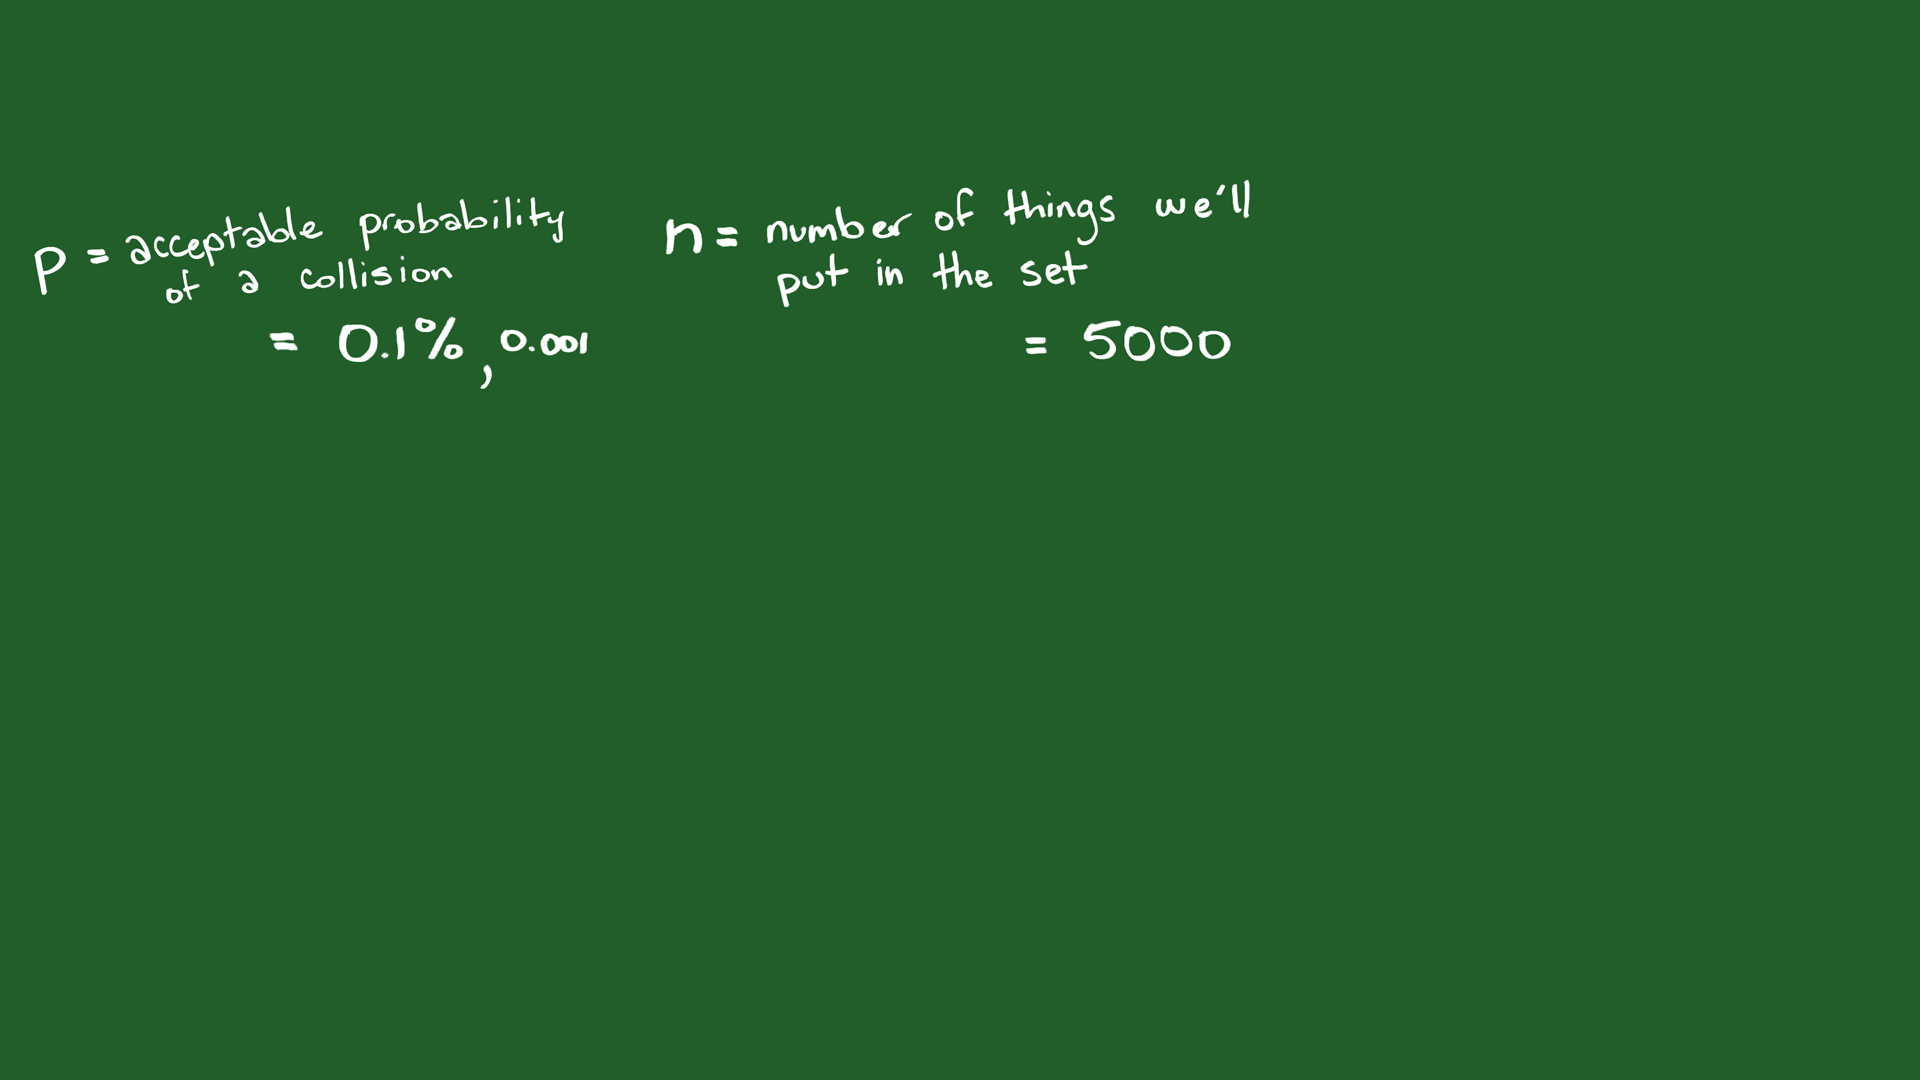 p = acceptable probability
of a collision
= 0.1%, 0.001
n = number of things we'll
put in the set
= 5000